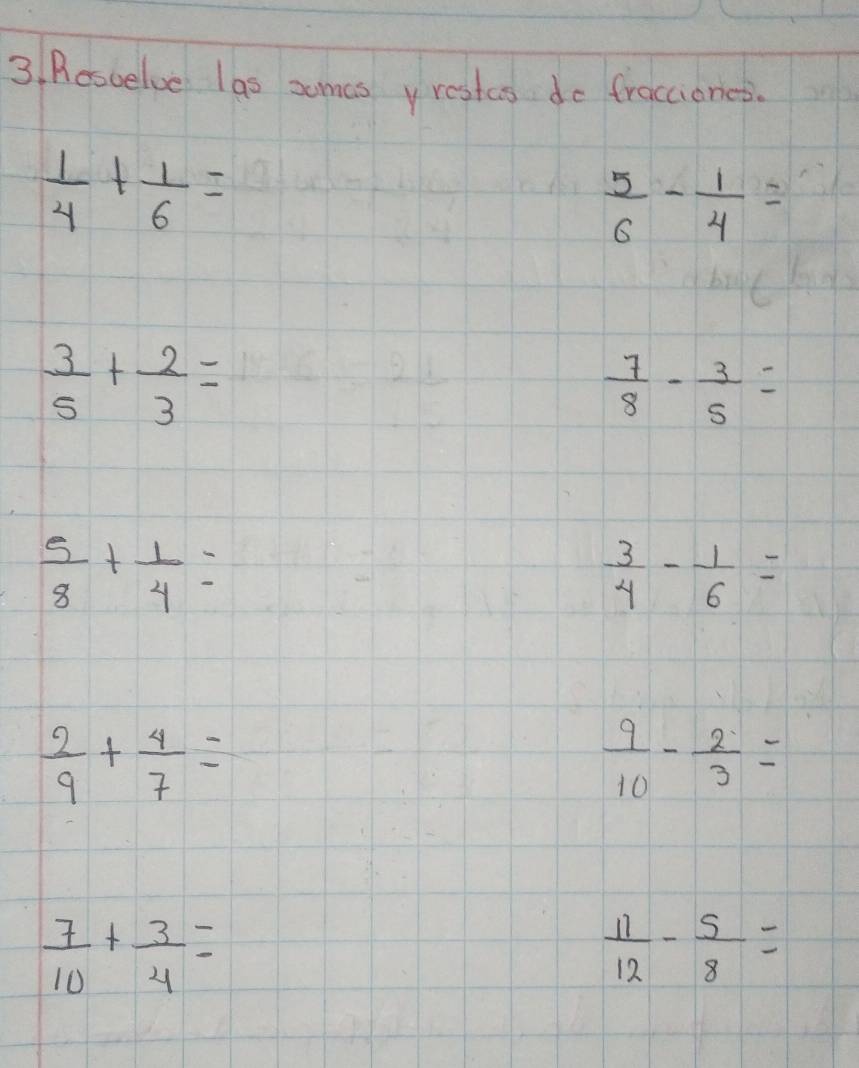 3. Resuelve las sumas y restas de fracciones.
1/4 + 1/6 =
5/6 - 1/4 =
3/5 + 2/3 =
7/8 - 3/5 =
5/8 + 1/4 =
3/4 - 1/6 =
2/9 + 4/7 =
9/10 - 2/3 =
7/10 + 3/4 =
11/12 - 5/8 =